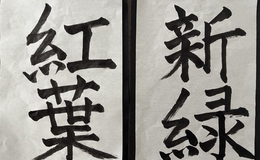 新緑
紅葉